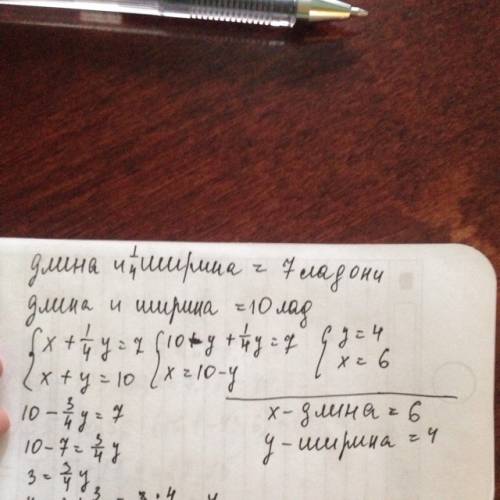 длина и 1/4 ширина = 7 ладони
длина и ширина = 10 лад
{ x + 1/4 y = 7 { 10 - y + 1/4 y = 7 { y = 4
x + y = 10 x = 10 - y x = 6
10 - 3/4 y = 7
10 - 7 = 3/4 y
3 = 3/4 y
x - длина = 6
y - ширина = 4